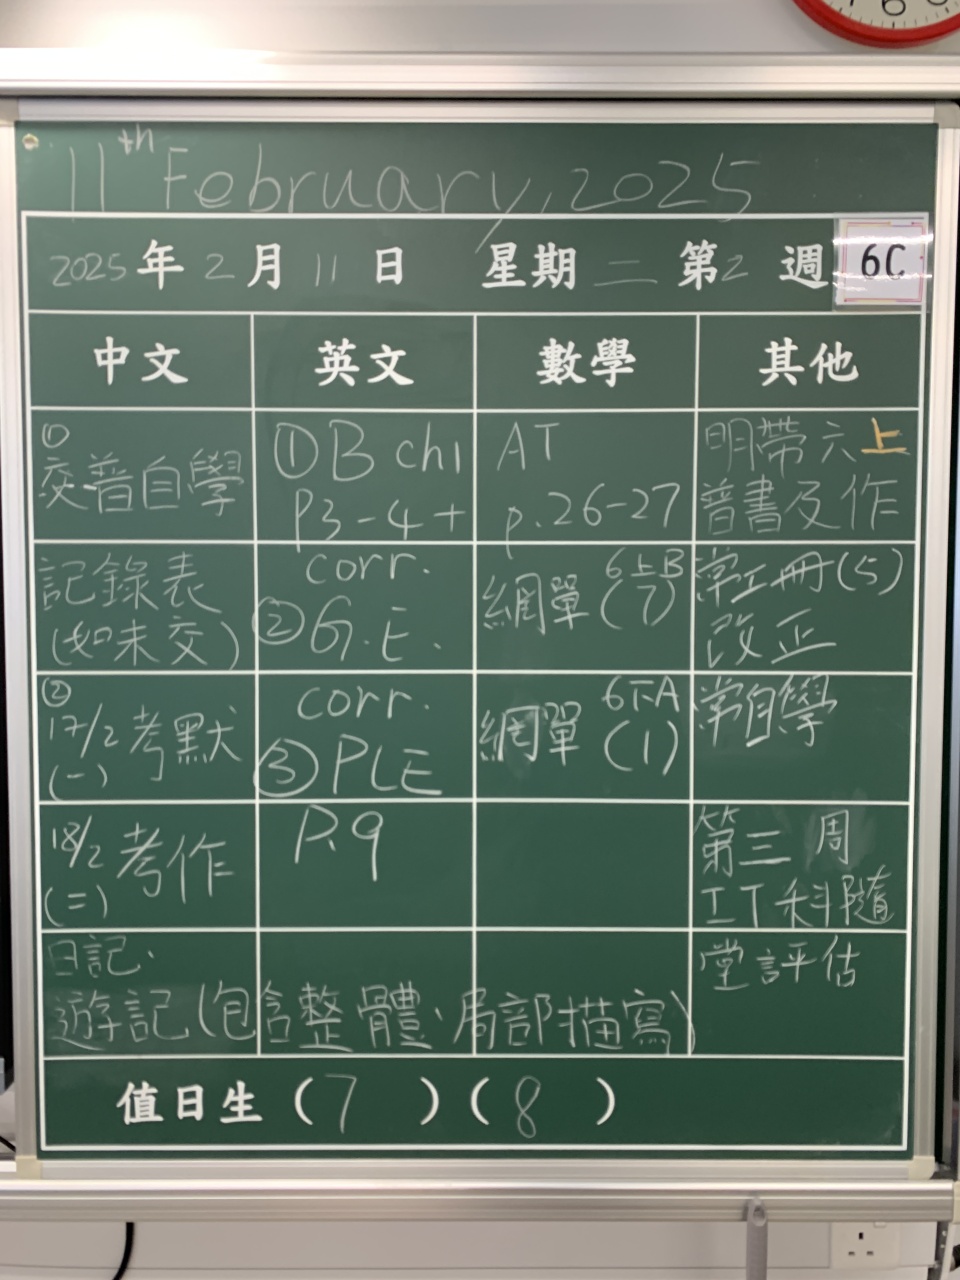 11th February, 2025
2025年2月11日 星期二 第2週 6C
中文 英文 數學 其他
①
交普自學
記錄表
(如未交)
②
17/2 考默
(一)
18/2 考作
(二)
日記、
遊記(包含整體、局部描寫)
①B ch1
P3-4+
corr.
②G.E.
corr.
③PLE
P.9
AT
p.26-27
網單 6上B
(7)
網單 6下A
(1)
明帶六上
普書及作
常工冊(5)
改正
常自學
第三周
IT科隨
堂評估
值日生(7)(8)